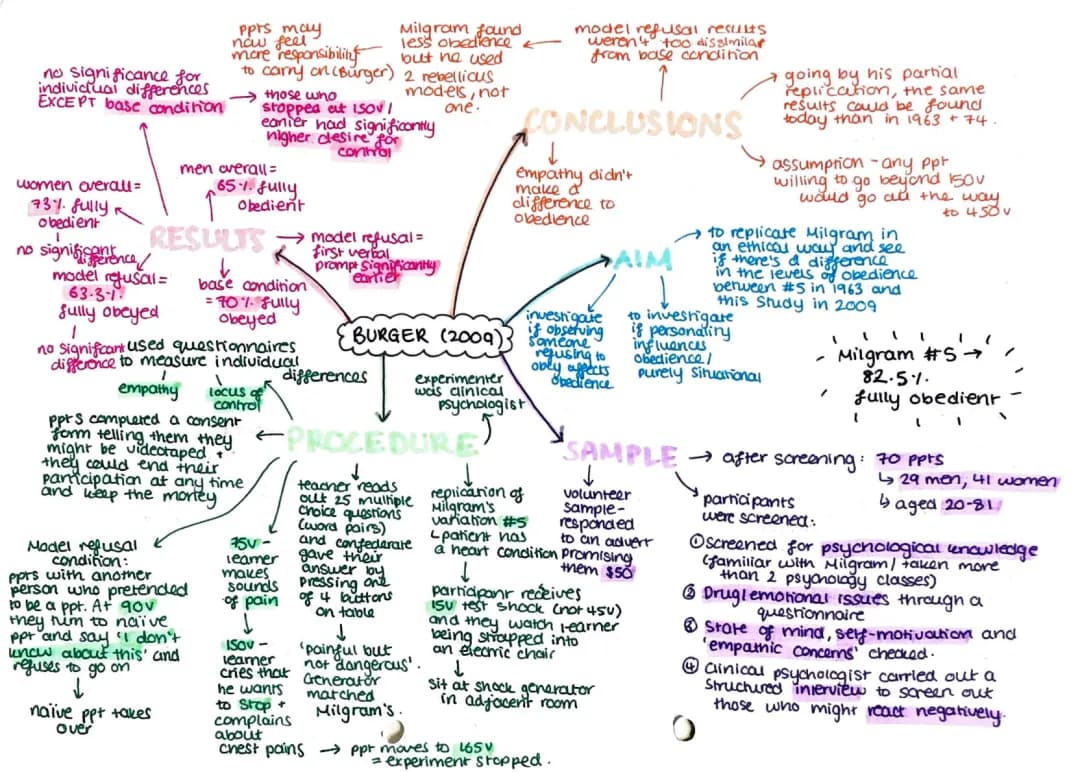 BURGER (2009)
CONCLUSIONS
model refusal results
weren't too dissimilar
from base condition
Milgram found
less obedience
but he used
2 rebellious
models, not
one.
ppts may
now feel
more responsibility
to carry on (Burger)
going by his partial
replication, the same
results could be found
today than in 1963 + 74.
assumption - any ppt
willing to go beyond 150v
would go all the way
to 450v
empathy didn't
make a
difference to
obedience
AIM
to replicate Milgram in
an ethical way and see
if there's a difference
in the levels of obedience
between #5 in 1963 and
this study in 2009
investigate
if observing
someone
refusing to
obey affects
obedience
to investigate
if personality
influences
obedience/
purely situational
Milgram #5 →
82.5%
fully obedient
RESULTS
no significance for
individual differences
EXCEPT base condition
those who
stopped at 150v/
earlier had significantly
higher desire for
control
men overall =
65% fully
obedient
women overall =
73% fully
obedient
no significant
difference
model refusal =
63.3%
fully obeyed
no significant
difference
base condition
= 70% fully
obeyed
model refusal =
first verbal
prompt significantly
earlier
PROCEDURE
used questionnaires
to measure individual
differences
empathy
locus of
control
experimenter
was clinical
psychologist
ppts completed a consent
form telling them they
might be videotaped +
they could end their
participation at any time
and keep the money
Model refusal
condition:
ppts with another
person who pretended
to be a ppt. At 90v
they turn to naïve
ppt and say 'I don't
know about this' and
refuses to go on
naïve ppt takes
over
75v -
learner
makes
sounds
of pain
150v -
learner
cries that
he wants
to stop +
complains
about
chest pains → ppt moves to 165v
= experiment stopped.
teacher reads
out 25 multiple
choice questions
(word pairs)
and confederate
gave their
answer by
pressing one
of 4 buttons
on table
'painful but
not dangerous'.
Generator
matched
Milgram's.
replication of
Milgram's
variation #5
↳ patient has
a heart condition
Participant receives
15v test shock (not 45v)
and they watch learner
being strapped into
an electric chair
sit at shock generator
in adjacent room
SAMPLE
volunteer
sample -
responded
to an advert
promising
them $50
after screening: 70 ppts
↳ 29 men, 41 women
↳ aged 20-81
participants
were screened:
① Screened for psychological knowledge
(familiar with Milgram/ taken more
than 2 psychology classes)
② Drug/emotional issues through a
questionnaire
③ State of mind, self-motivation and
'empathic concerns' checked.
④ Clinical psychologist carried out a
structured interview to screen out
those who might react negatively.